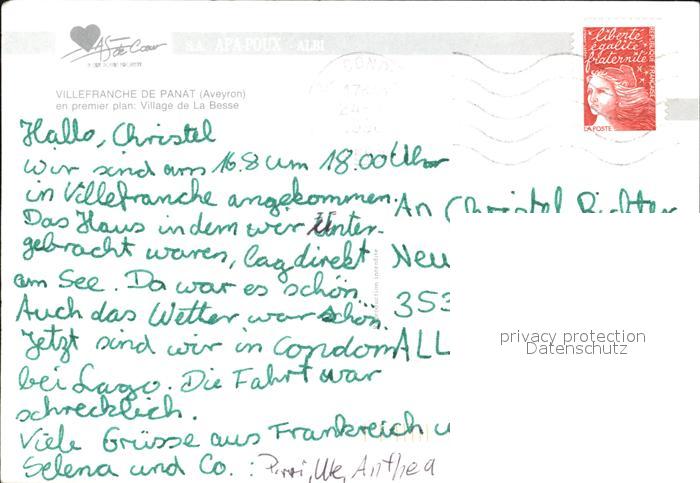 As de Cœur
S.A. APA-POUX - ALBI
VILLEFRANCHE DE PANAT (Aveyron)
en premier plan: Village de La Besse
liberté
égalité
fraternité
REPUBLIQUE FRANÇAISE
LA POSTE
Hallo, Christel
wir sind am 16.8 um 18.00 Uhr
in Villefranche angekommen.
Das Haus in dem wir unter-
gebracht waren, lag direkt
am See. Da war es schön.
Auch das Wetter war schön.
Jetzt sind wir in Condom
bei Lago. Die Fahrt war
schrecklich.
Viele Grüsse aus Frankreich u
Selena und Co. : Pirri, Ute, Anthea
An Christel Richter
Neu
353
ALL
privacy protection
Datenschutz